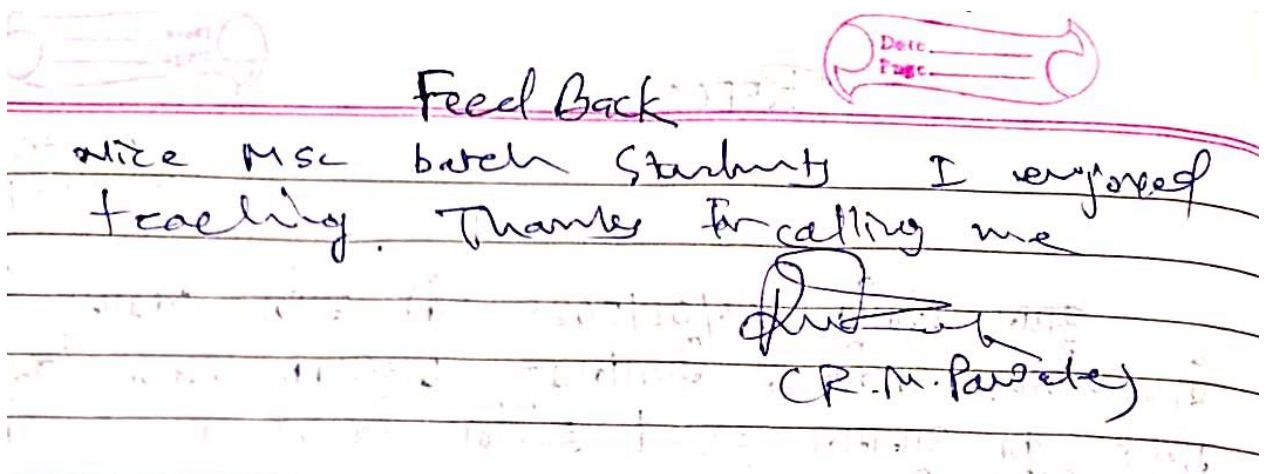 Date
Page
Feed Back
Nice MSc batch Students I enjoyed
teaching. Thanks for calling me
(R.M.